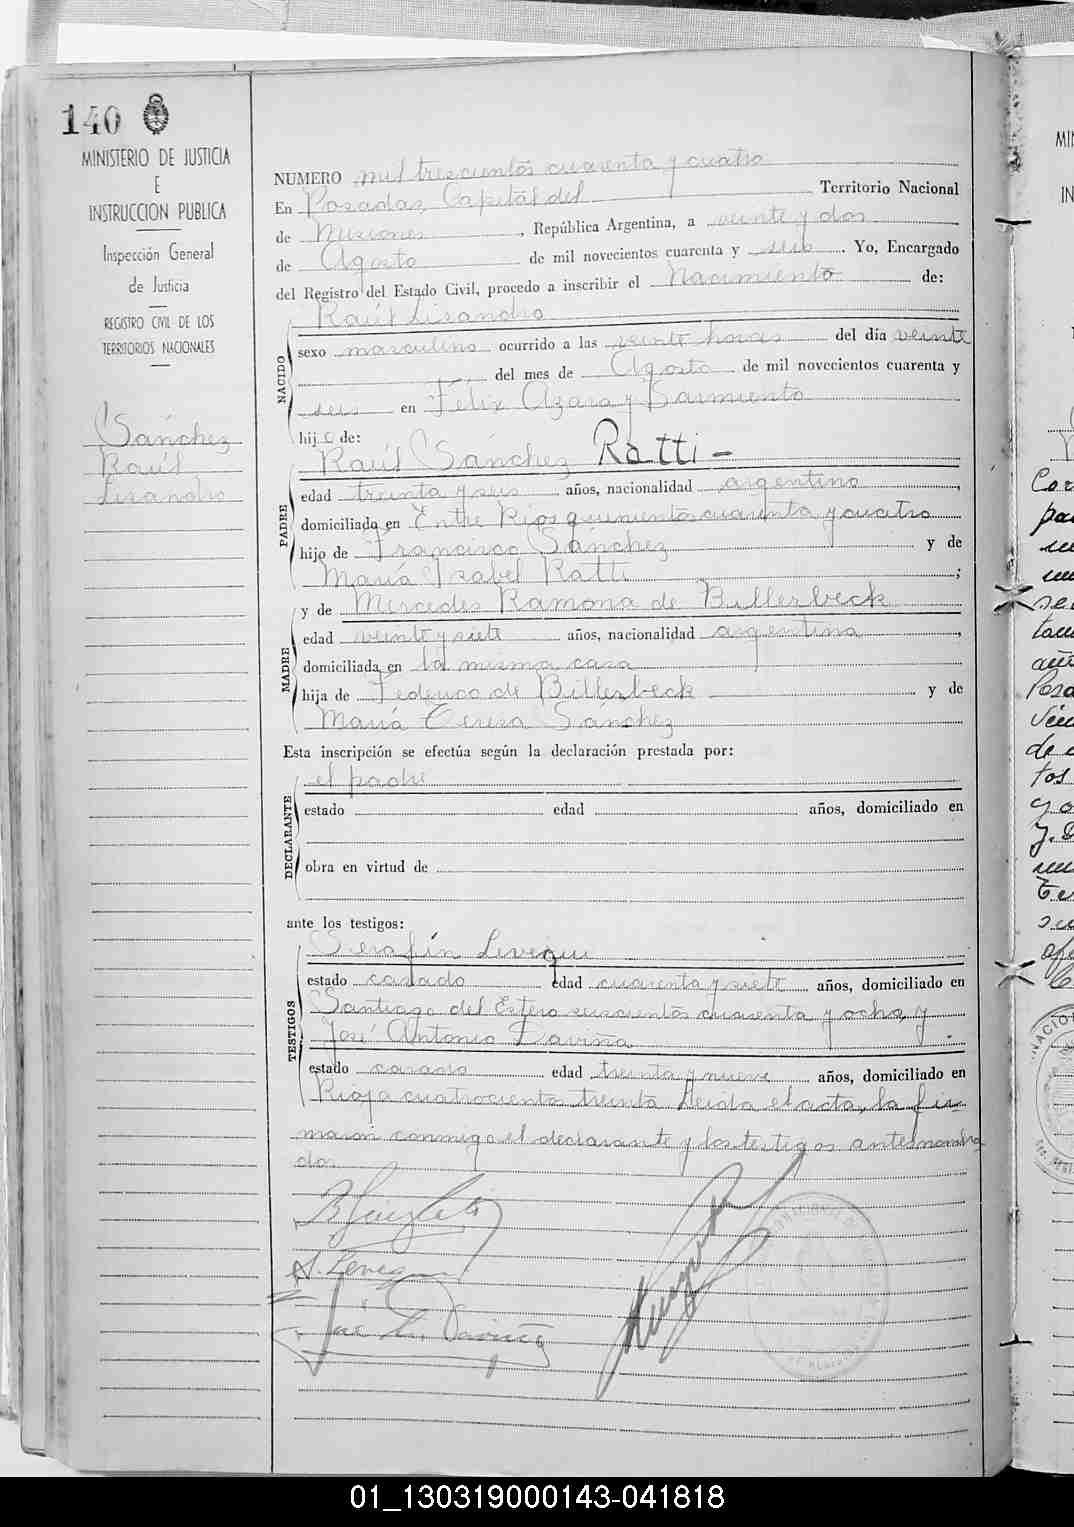 140
MINISTERIO DE JUSTICIA
E
INSTRUCCION PUBLICA
Inspección General
de Justicia
REGISTRO CIVIL DE LOS
TERRITORIOS NACIONALES
Sánchez
Raúl
Lisandro
NUMERO mil trescientos cuarenta y cuatro
En Posadas, Capital del Territorio Nacional
de Misiones, República Argentina, a veinte y dos
de Agosto de mil novecientos cuarenta y seis. Yo, Encargado
del Registro del Estado Civil, procedo a inscribir el Nacimiento de:
Raúl Lisandro
NACIDO
sexo masculino ocurrido a las veinte horas del día veinte
del mes de Agosto de mil novecientos cuarenta y
seis en Félix Azara y Sarmiento
hijo de:
Raúl Sánchez Ratti -
PADRE
edad treinta y seis años, nacionalidad argentino,
domiciliado en Entre Rios quinientos cuarenta y cuatro
hijo de Francisco Sánchez y de
María Isabel Ratti;
y de Mercedes Ramona de Billerbeck
MADRE
edad veinte y siete años, nacionalidad argentina,
domiciliada en la misma casa
hija de Federico de Billerbeck y de
María Teresa Sánchez
Esta inscripción se efectúa según la declaración prestada por:
el padre
DECLARANTE
estado edad años, domiciliado en
obra en virtud de
ante los testigos:
Serafín Leveque
TESTIGOS
estado casado edad cuarenta y siete años, domiciliado en
Santiago del Estero seiscientos cuarenta y ocho, y
José Antonio Daviña
estado casado edad treinta y nueve años, domiciliado en
Rioja cuatrocientos treinta. Leída el acta, la fir-
maron conmigo el declarante y los testigos antes nombra
dos.
S. Leveque
José A. Daviña
01_130319000143-041818